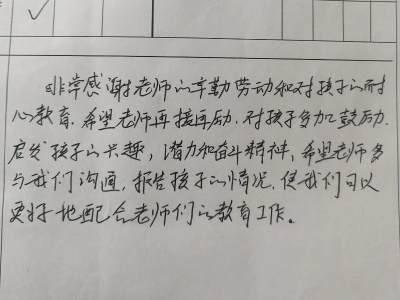 非常感谢老师的辛勤劳动和对孩子的耐
心教育.希望老师再接再励.对孩子多加鼓励.
启发孩子的兴趣,潜力和奋斗精神,希望老师多
与我们沟通,报告孩子的情况,使我们可以
更好地配合老师们的教育工作。